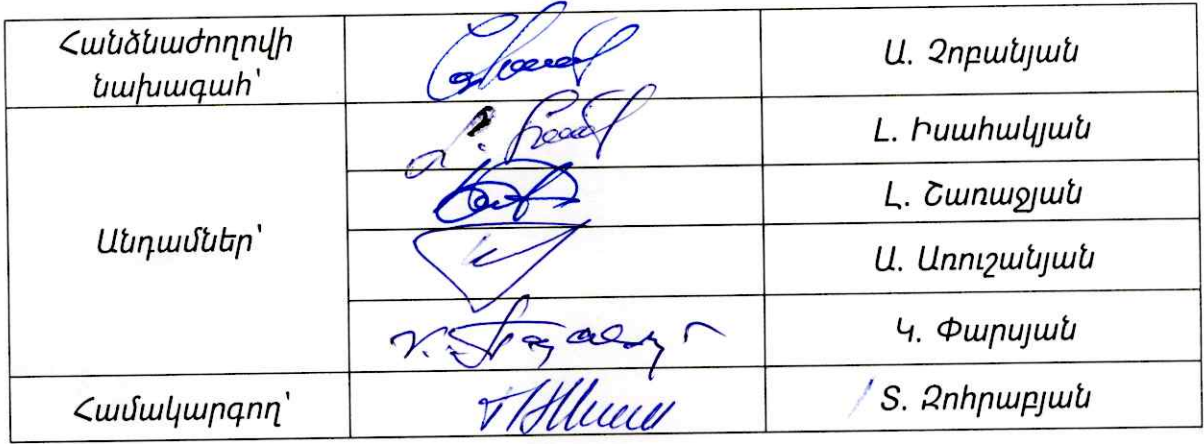 Հանձնաժողովի
նախագահ՝
Ա. Չոբանյան
Անդամներ՝
Լ. Իսահակյան
Լ. Շառաջյան
Ա. Առուշանյան
Կ. Փարսյան
Համակարգող՝
Տ. Զոհրաբյան